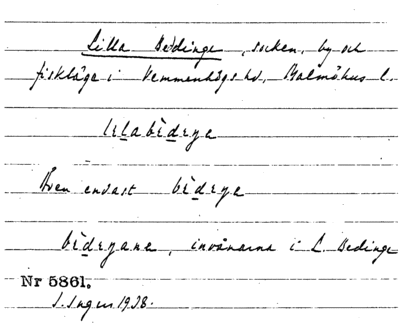 Lilla Beddinge, socken, by och
fiskläge i Vemmenhögs hd. Malmöhus l.
lılabèdıŋe
Även enbart bèdıŋe
bèdıŋana, invånarna i L. Bedinge
Nr 5861.
I. Ingers 1938.